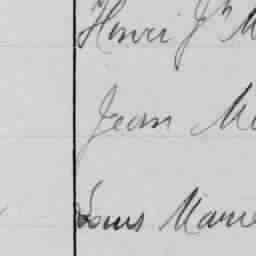 Henri Jh M
Jean Ma
Louis Marie